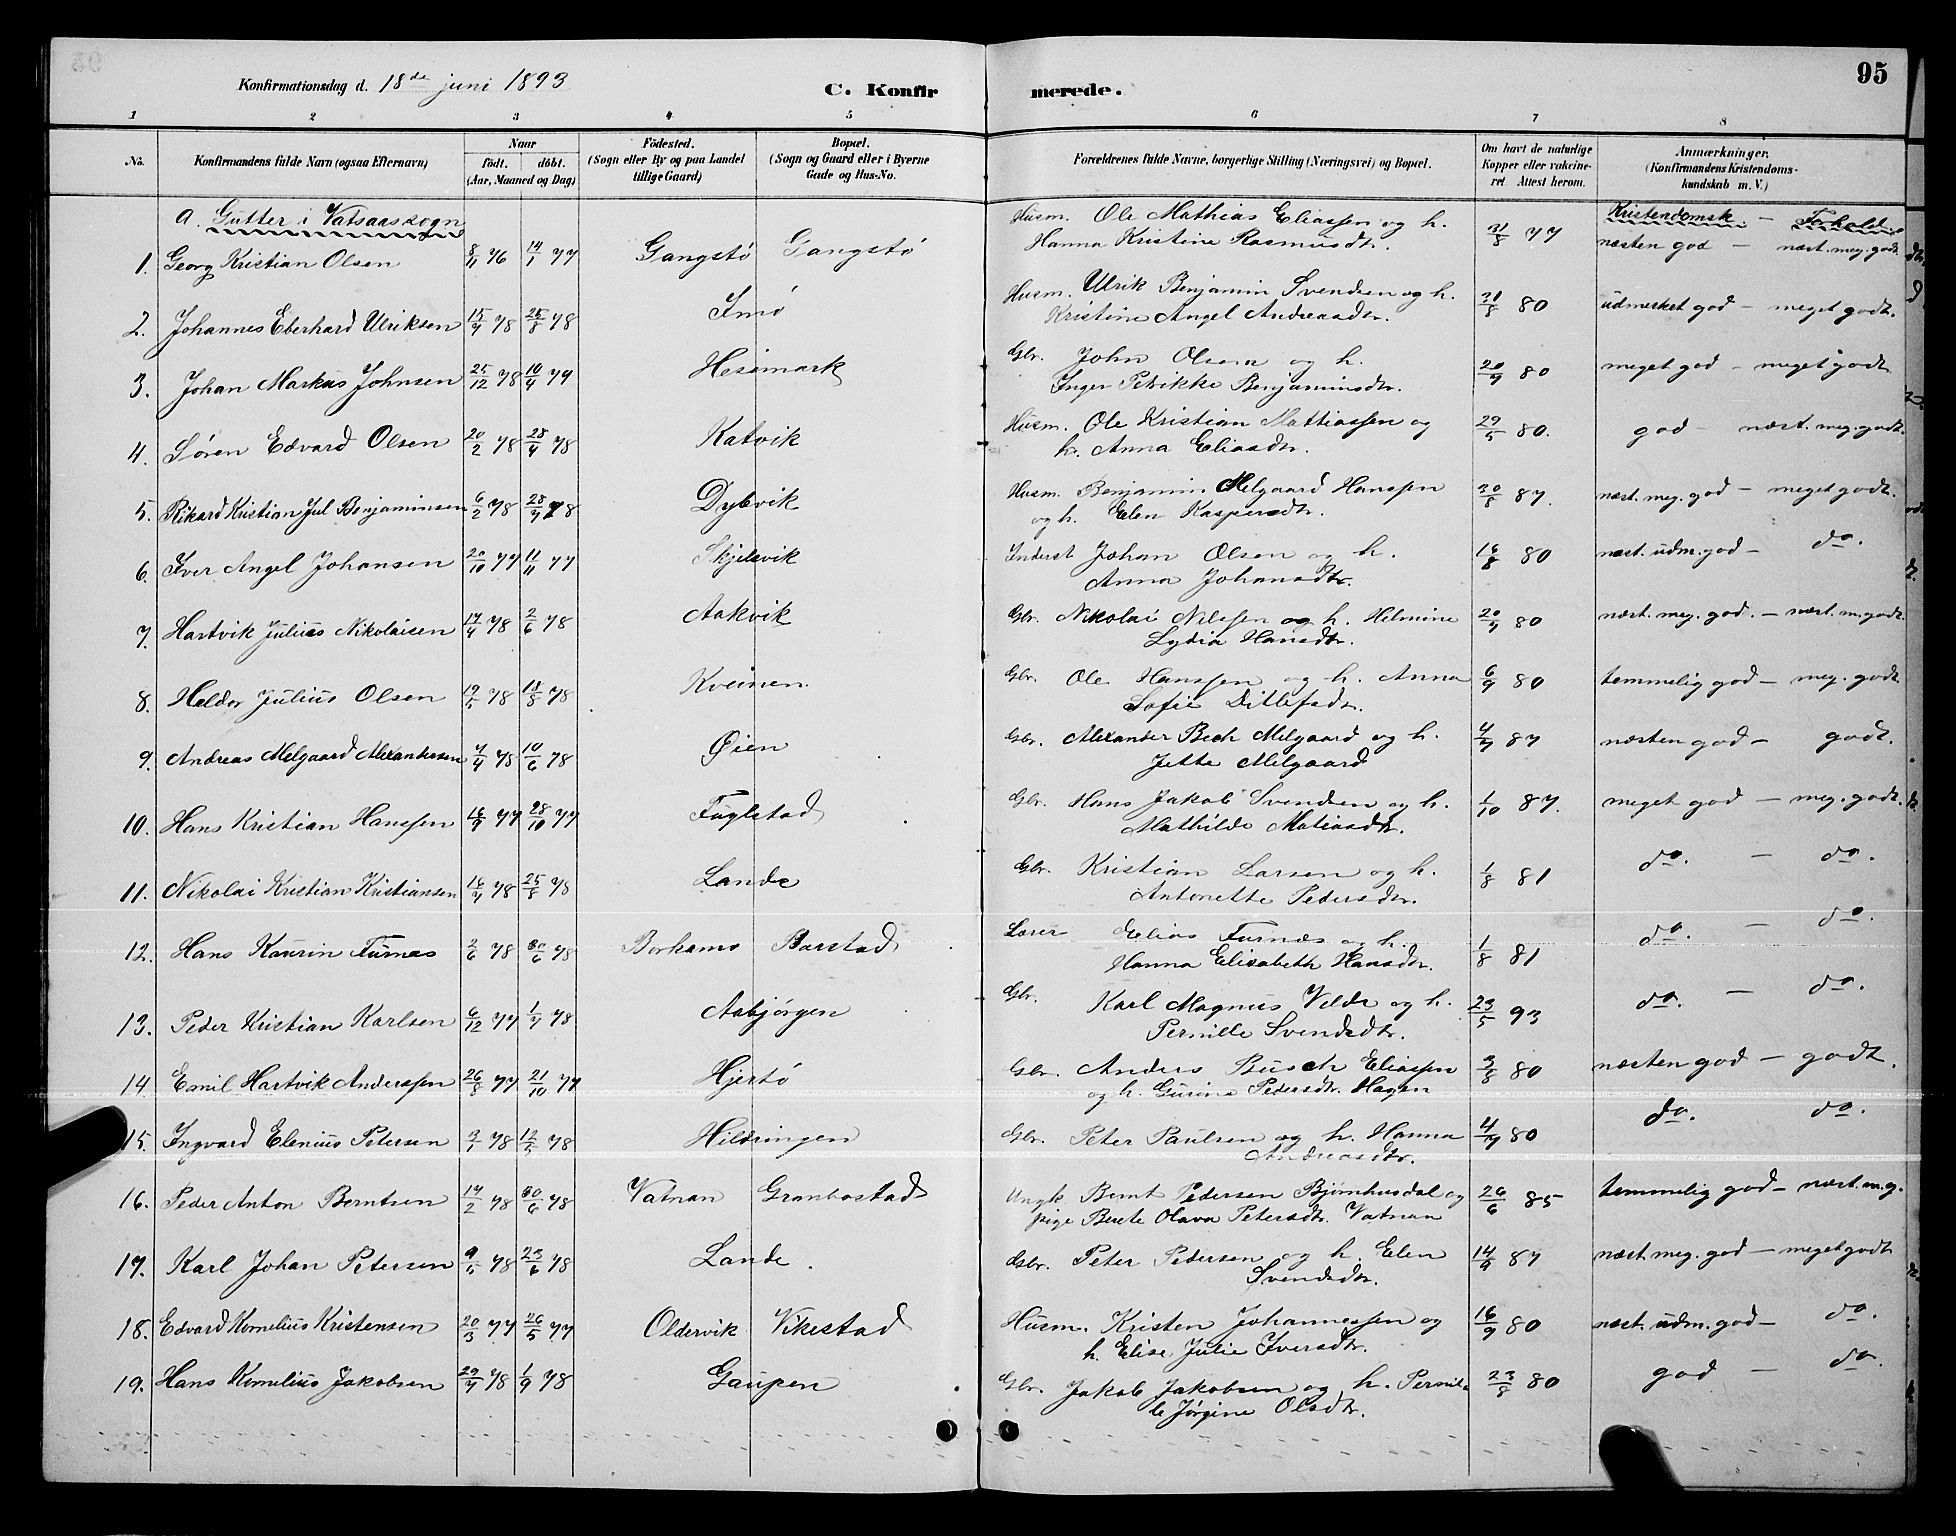 95
Konfirmationsdag d. 18de juni 1893
C. Konfirmerede.
1 2 3 4 5 6 7 8
No. Konfirmandens fulde Navn (ogsaa Efternavn) Naar födt. döbt. (Aar, Maaned og Dag) Födested. (Sogn eller By og paa Landet tillige Gaard) Bopæl. (Sogn og Gaard eller i Byerne Gade og Hus-No. Forældrenes fulde Navne, borgerlige Stilling (Næringsvei) og Bopæl. Om havt de naturlige Kopper eller vakcineret Attest herom. Anmærkninger. (Konfirmandens Kristendomskundskab m. V.)
a. Gutter i Vatsaas sogn Kristendomsk. — Forhold.
1. Georg Kristian Olsen 8/11 76 14/1 77 Gangstö Gangstö Husm. Ole Mathias Eliassen og h. Hanna Kristine Rasmusdtr. 31/8 77 næsten god — næst. meg. godt.
2. Johannes Eberhard Ulriksen 15/7 78 25/8 78 Imö Husm. Ulrik Benjamin Svendsen og h. Kristine Angel Andreasdtr. 21/8 80 udmerket god — meget godt.
3. Johan Markus Johnsen 25/12 78 10/4 79 Hesmark Gbr. John Olsen og h. Inger Petrikke Benjaminsdtr. 20/9 80 meget god — meget godt
4. Sören Edvard Olsen 20/2 78 28/4 78 Katvik Husm. Ole Kristian Mattiassen og h. Anna Eliasdtr. 29/5 80. god — næst. meg. godt.
5. Rikard Kristian Jul Benjaminsen 6/2 78 28/4 78 Dybvik Husm. Benjamin Melgaard Hanssen og h. Elen Kaspersdtr. 20/8 87. næst. meg. god — meget godt.
6. Iver Angel Johansen 20/10 77 11/11 77 Skjelsvik Inderst Johan Olsen og h. Anna Johansdtr. 16/8 80 næst. udm. god — do.
7. Hartvik Julius Nikolaisen 17/4 78 2/6 78 Aakvik Gbr. Nikolai Nilssen og h. Helmine Lydia Hansdtr. 20/9 80 næst. meg. god. — næst. m. godt.
8. Heldor Julius Olsen 19/5 78 18/8 78 Kveinen Gbr. Ole Hanssen og h. Anna Sofie Ditlefsdtr. 6/9 80 temmelig god — meg. godt.
9. Andreas Melgaard Alexandersen 7/4 78 10/6 78 Øien Gbr. Alexander Bech Melgaard og h. Jette Melgaard 4/7 87 næsten god — godt.
10. Hans Kristian Hanssen 16/9 77 28/10 77 Fuglstad Gbr. Hans Jakob Svendsen og h. Mathilde Matiasdtr. 1/10 87. meget god — meg. godt.
11. Nikolai Kristian Kristiansen 16/7 78 25/8 78 Lande Gbr. Kristian Larsen og h. Antonette Pedersdtr. 1/8 81 do. — do.
12. Hans Kaurin Furnes 2/6 78 30/6 78 Borkamo Barstad Lærer Elias Furnæs og h. Hanna Elisabeth Hansdtr. 1/8 81 do. — do.
13. Peder Kristian Karlsen 6/12 77 1/7 78 Aabjörgen Gbr. Karl Magnus Velde og h. Pernille Svendsdtr. 23/5 93 do. — do.
14 Emil Hartvik Anderssen 26/8 77 21/10 77 Hjertö Gbr. Anders Busch Eliassen og h. Gurine Pedersdtr. Hagen 3/8 80 næsten god — godt.
15. Ingvard Elenius Petersen 78 12/5 78 Hildringen Gbr. Peter Paulsen og h. Hanna Andreasdtr. 4/9 80 do. do.
16. Peder Anton Berntsen 17/2 78 30/6 78 Vatnan Granbostad Ungk. Bernt Pedersen Bjørnhusdal og pige Berete Olava Petersdtr. Vatnan 26/6 85 temmelig god — næst. m. g.
17. Karl Johan Petersen 9/5 78 23/6 78 Lande. Gbr. Peter Pedersen og h. Elen Svendsdtr. 14/9 87 næst. meg. god — meget godt
18. Edvard Kornelius Kristensen 20/3 77 26/5 77 Oldervik Vikestad Husm. Kristen Johannessen og h. Elise Julie Iversdtr. 16/9 80 næst. udm. god — do.
19. Hans Kornelius Jakobsen 29/7 78 1/9 78 Gaupen Gbr. Jakob Jakobsen og h. Pernille Jörgine Olsdtr. 23/8 80 god — do.